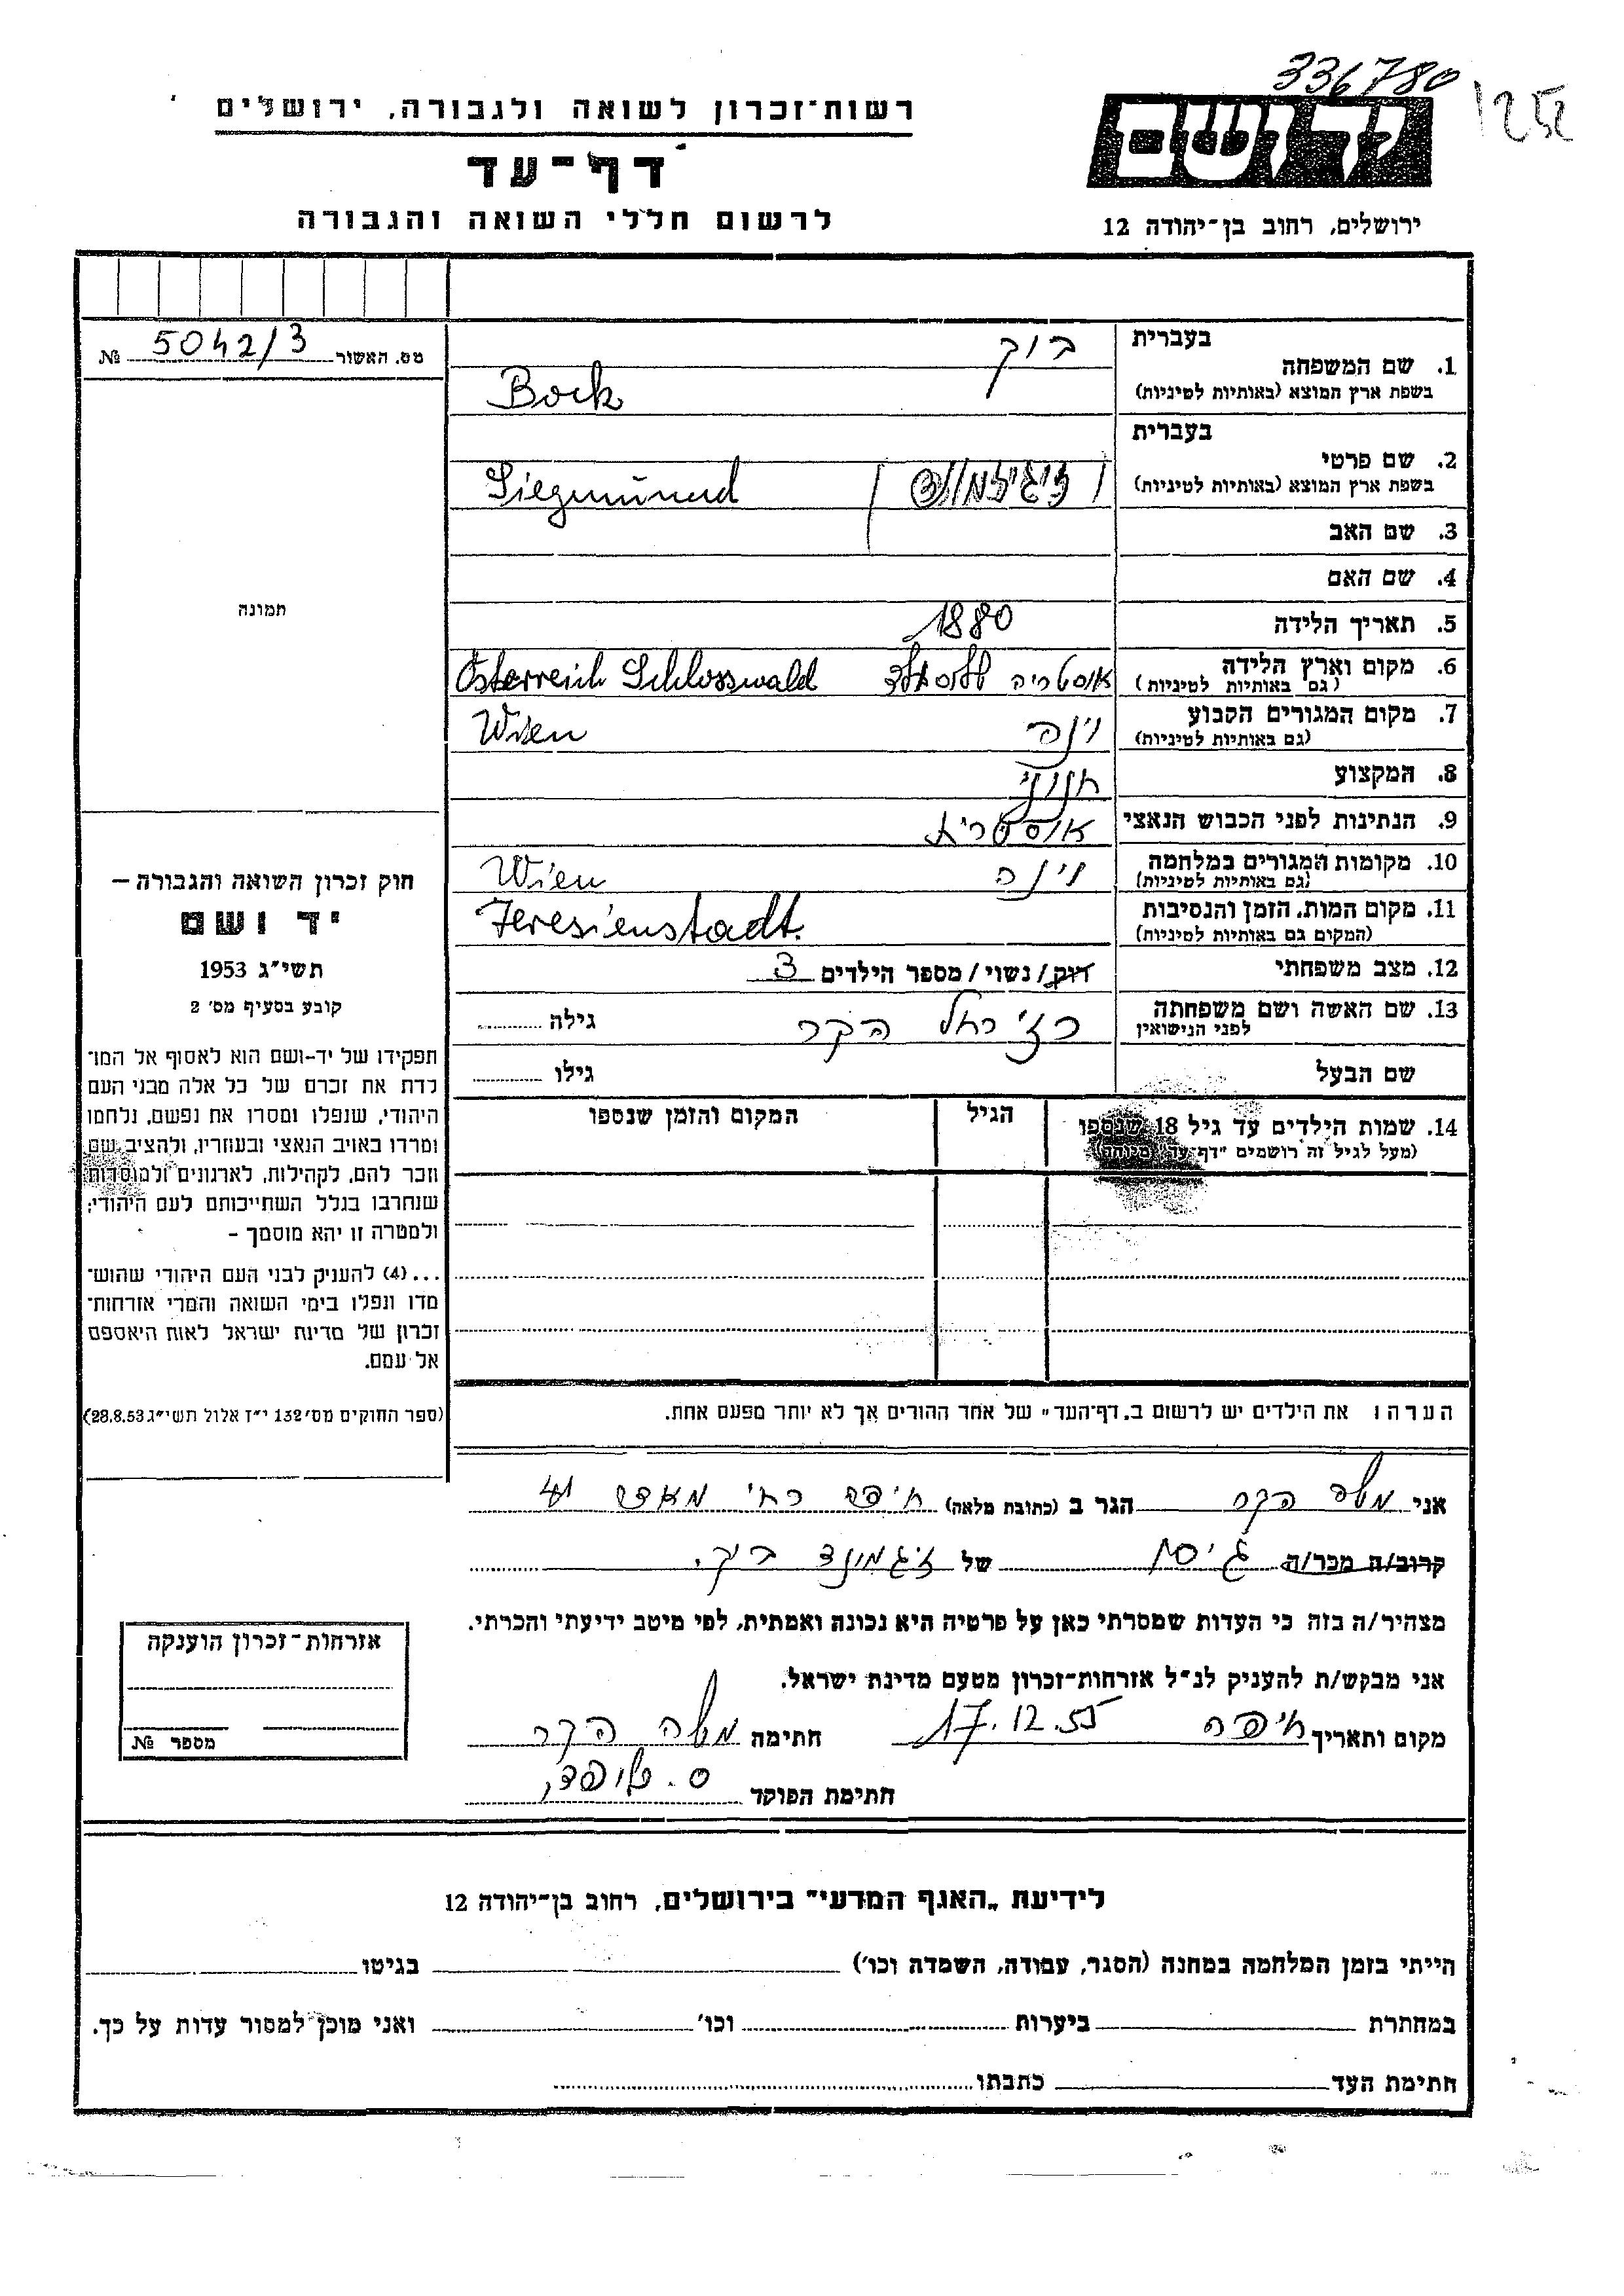 336780
1252
רשות־זכרון לשואה ולגבורה, ירושלים
ידושם
דף־עד
לרשום חללי השואה והגבורה
ירושלים, רחוב בן־יהודה 12
מס. האשור 5042/3 №
תמונה
חוק זכרון השואה והגבורה —
יד ושם
תשי״ג 1953
קובע בסעיף מס׳ 2
תפקידו של יד-ושם הוא לאסוף אל המו־
לדת את זכרם של כל אלה מבני העם
היהודי, שנפלו ומסרו את נפשם, נלחמו
ומרדו באויב הנאצי ובעוזריו, ולהציב שם
וזכר להם, לקהילות, לארגונים ולמוסדות
שנחרבו בגלל השתייכותם לעם היהודי;
ולמטרה זו יהא מוסמך –
...(4) להעניק לבני העם היהודי שהוש־
מדו ונפלו בימי השואה והמרי אזרחות־
זכרון של מדינת ישראל לאות היאספם
אל עמם.
(ספר החוקים מס׳ 132 י״ז אלול תשי״ג 28.8.53)
בעברית
1. שם המשפחה בוק
בשפת ארץ המוצא (באותיות לטיניות) Bock
בעברית
2. שם פרטי
בשפת ארץ המוצא (באותיות לטיניות) Siegmünd
3. שם האב
4. שם האם
5. תאריך הלידה 1880
6. מקום וארץ הלידה אוסטריה שלוסולד Österreich Schlosswald
(גם באותיות לטיניות)
7. מקום המגורים הקבוע וינה Wien
(גם באותיות לטיניות)
8. המקצוע חנוני
9. הנתינות לפני הכבוש הנאצי אוסטרית
10. מקומות המגורים במלחמה וינה Wien
(גם באותיות לטיניות)
11. מקום המות, הזמן והנסיבות Teresienstadt.
(המקום גם באותיות לטיניות)
12. מצב משפחתי רווק/נשוי/מספר הילדים 3
13. שם האשה ושם משפחתה רחל הקר גילה
לפני הנישואין
שם הבעל גילו
14. שמות הילדים עד גיל 18 שנספו הגיל המקום והזמן שנספו
(מעל לגיל זה רושמים "דף־עד" מיוחד)
הערה: את הילדים יש לרשום ב„דף־העד" של אחד ההורים אך לא יותר מפעם אחת.
אני משה הקר הגר ב (כתובת מלאה) חיפה רח׳ מאפו 41
קרוב/ה מכר/ה גיסו של זיגמונד בוק.
מצהיר/ה בזה כי העדות שמסרתי כאן על פרטיה היא נכונה ואמתית, לפי מיטב ידיעתי והכרתי.
אני מבקש/ת להעניק לנ״ל אזרחות־זכרון מטעם מדינת ישראל.
מקום ותאריך חיפה 17.12.55 חתימה משה הקר
חתימת הפוקד
אזרחות־זכרון הוענקה
מספר №
לידיעת „האגף המדעי" בירושלים, רחוב בן־יהודה 12
הייתי בזמן המלחמה במחנה (הסגר, עבודה, השמדה וכו׳) בגיטו
במחתרת ביערות וכו׳ ואני מוכן למסור עדות על כך.
חתימת העד כתבתו